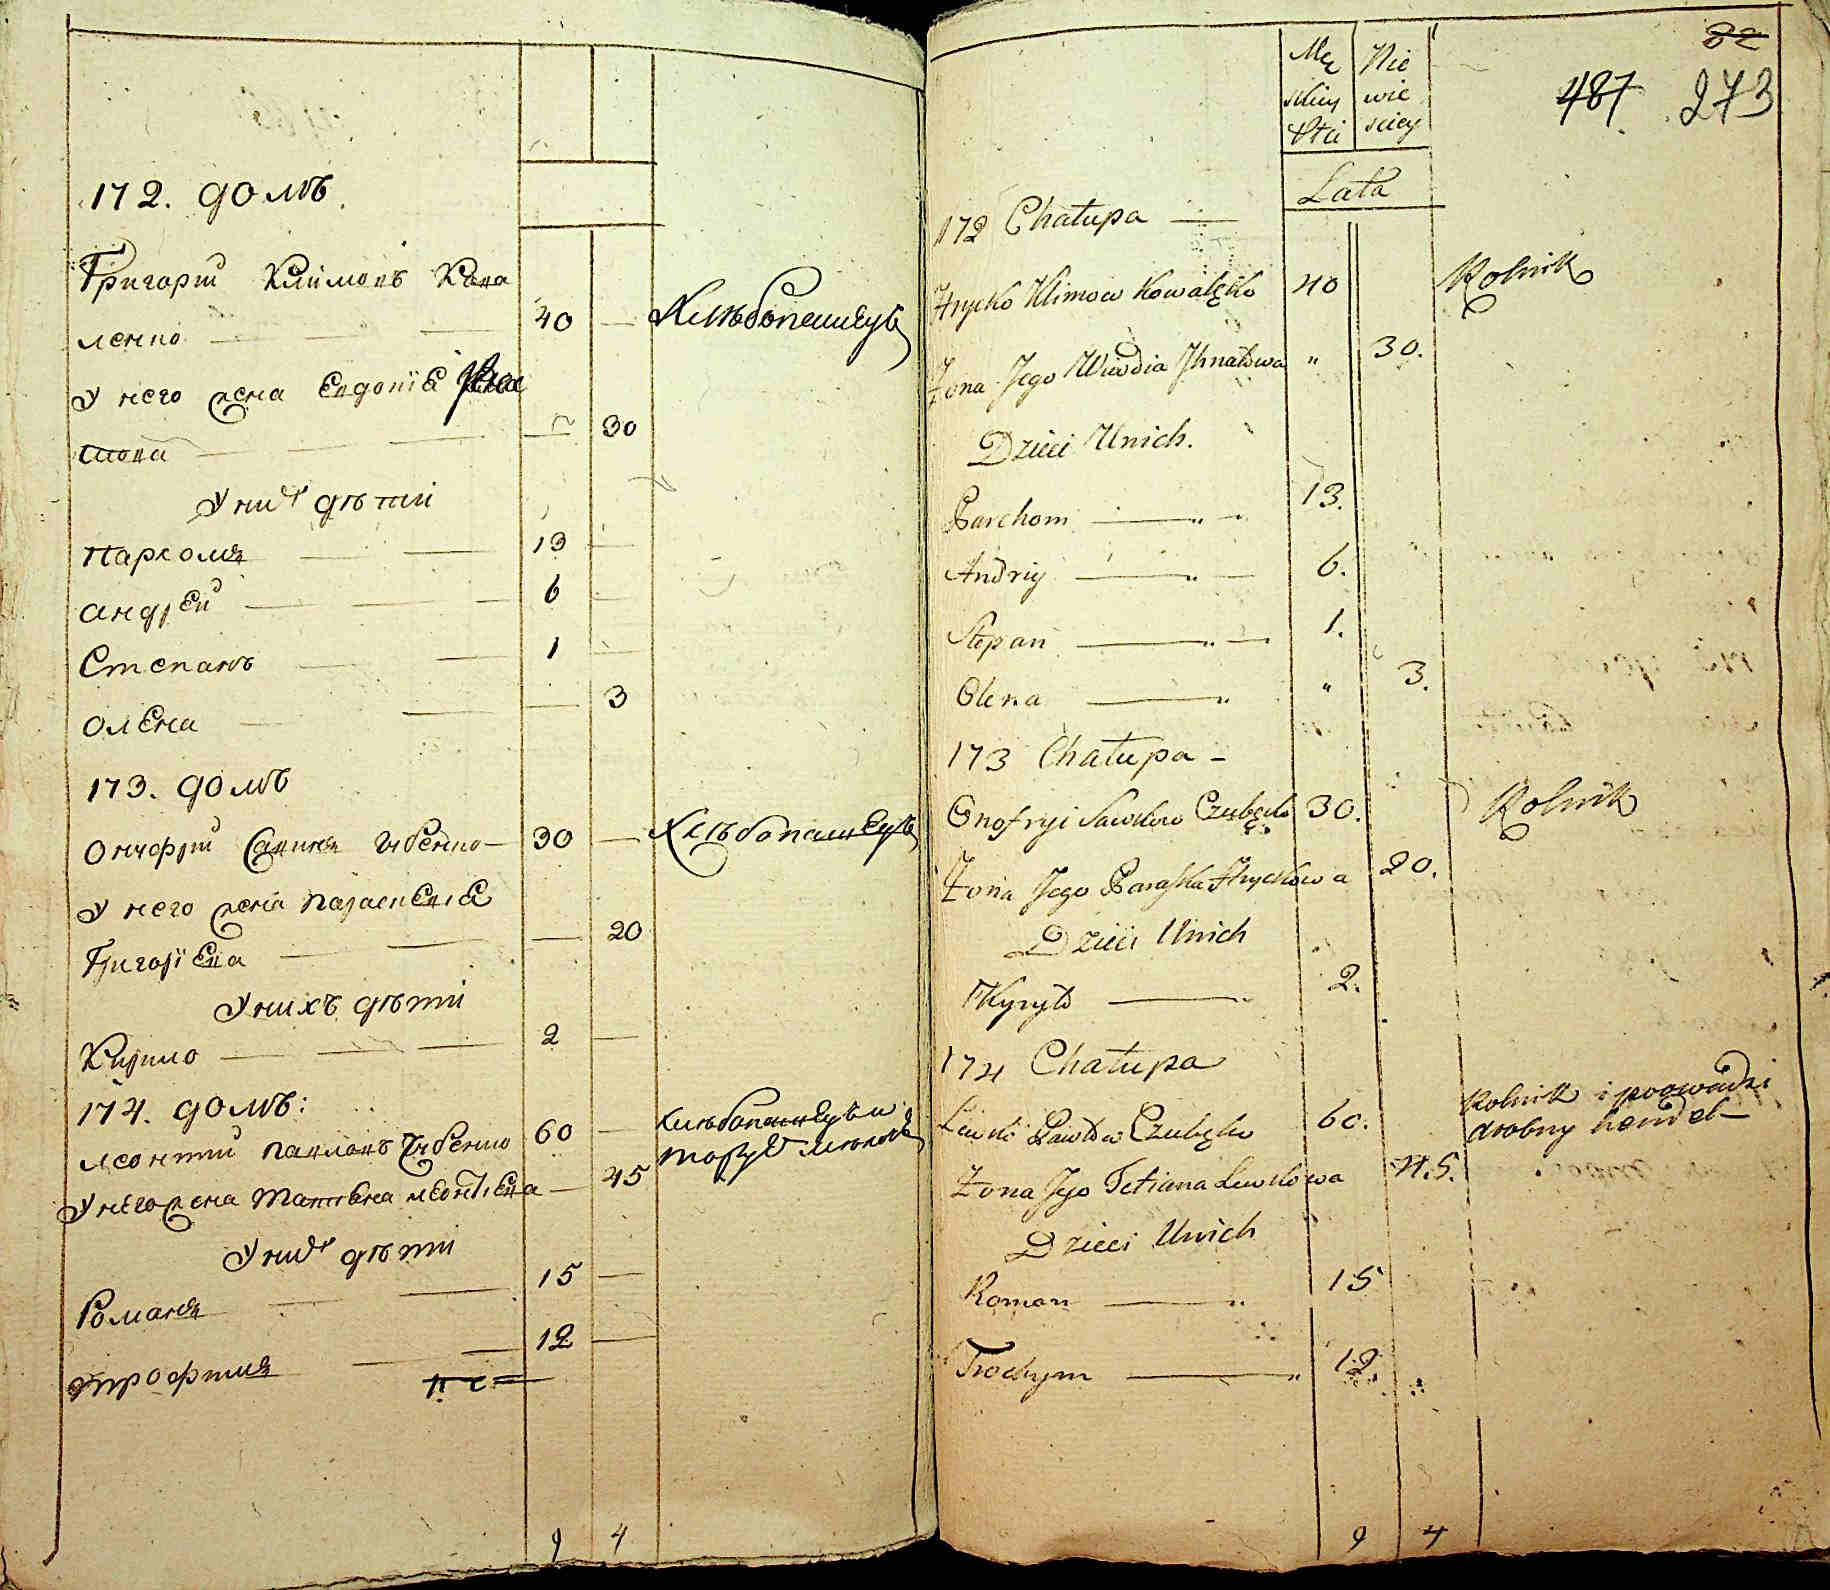 172. домъ.
Григорій Климовъ Кова
ленко 40 Хлѣбопашецъ
У него жена Евдокіѣ Игна
това 30
У них дѣти
Пархомъ 13
Андрей 6
Степанъ 1
Олена 3
173. домъ
Онуфрій Савинъ Чубенко 30 Хлѣбопашецъ
У него жена Параскевіѣ
Григоріева 20
У нихъ дѣти
Кирило 2
174. домъ:
Леонтій Павловъ Чубенко 60 Хлѣбопашецъ и
У него жена Татіена Леонтіева 45
У них дѣти
Романъ 15
Трофимъ 12
9 4
82
487 273
Mę Nie
skiey wie
Płci sciey
Lata
172 Chałupa
Hrycko Klimow Kowalęko 40 Rolnik
Żona Jego Wiwdia Jhnatowa " 30.
Dzieci Unich.
Parchom 13.
Andriy 6.
Stepan 1.
Olena " 3.
173 Chałupa
Onofryi Sawkow Czubęko 30. Rolnik
Żona Jego Paraska Hryckowa 20.
Dzieci Unich
Kyryło 2.
174 Chałupa
Lewko Pawłow Czubęko 60. Rolnik i prowadzi
drobny hendel
Żona Jego Tetiana Lewkowa 45.
Dzieci Unich
Roman 15
Trochym 12.
9 4